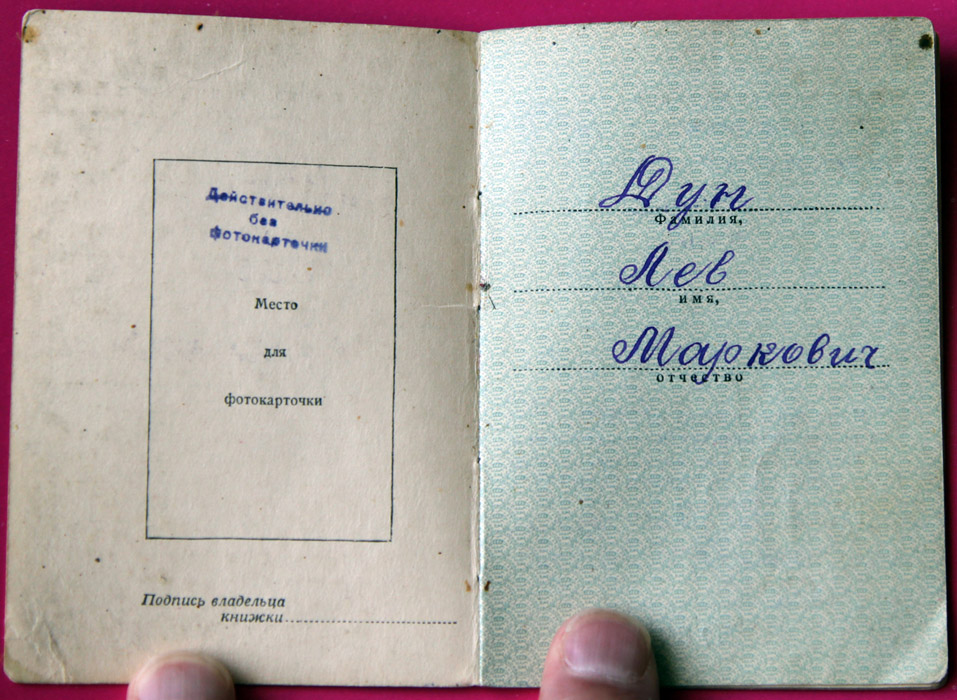 Действительно
без
фотокарточки
Место
для
фотокарточки
Подпись владельца
книжки
Дун
фамилия,
Лев
имя,
Маркович
отчество